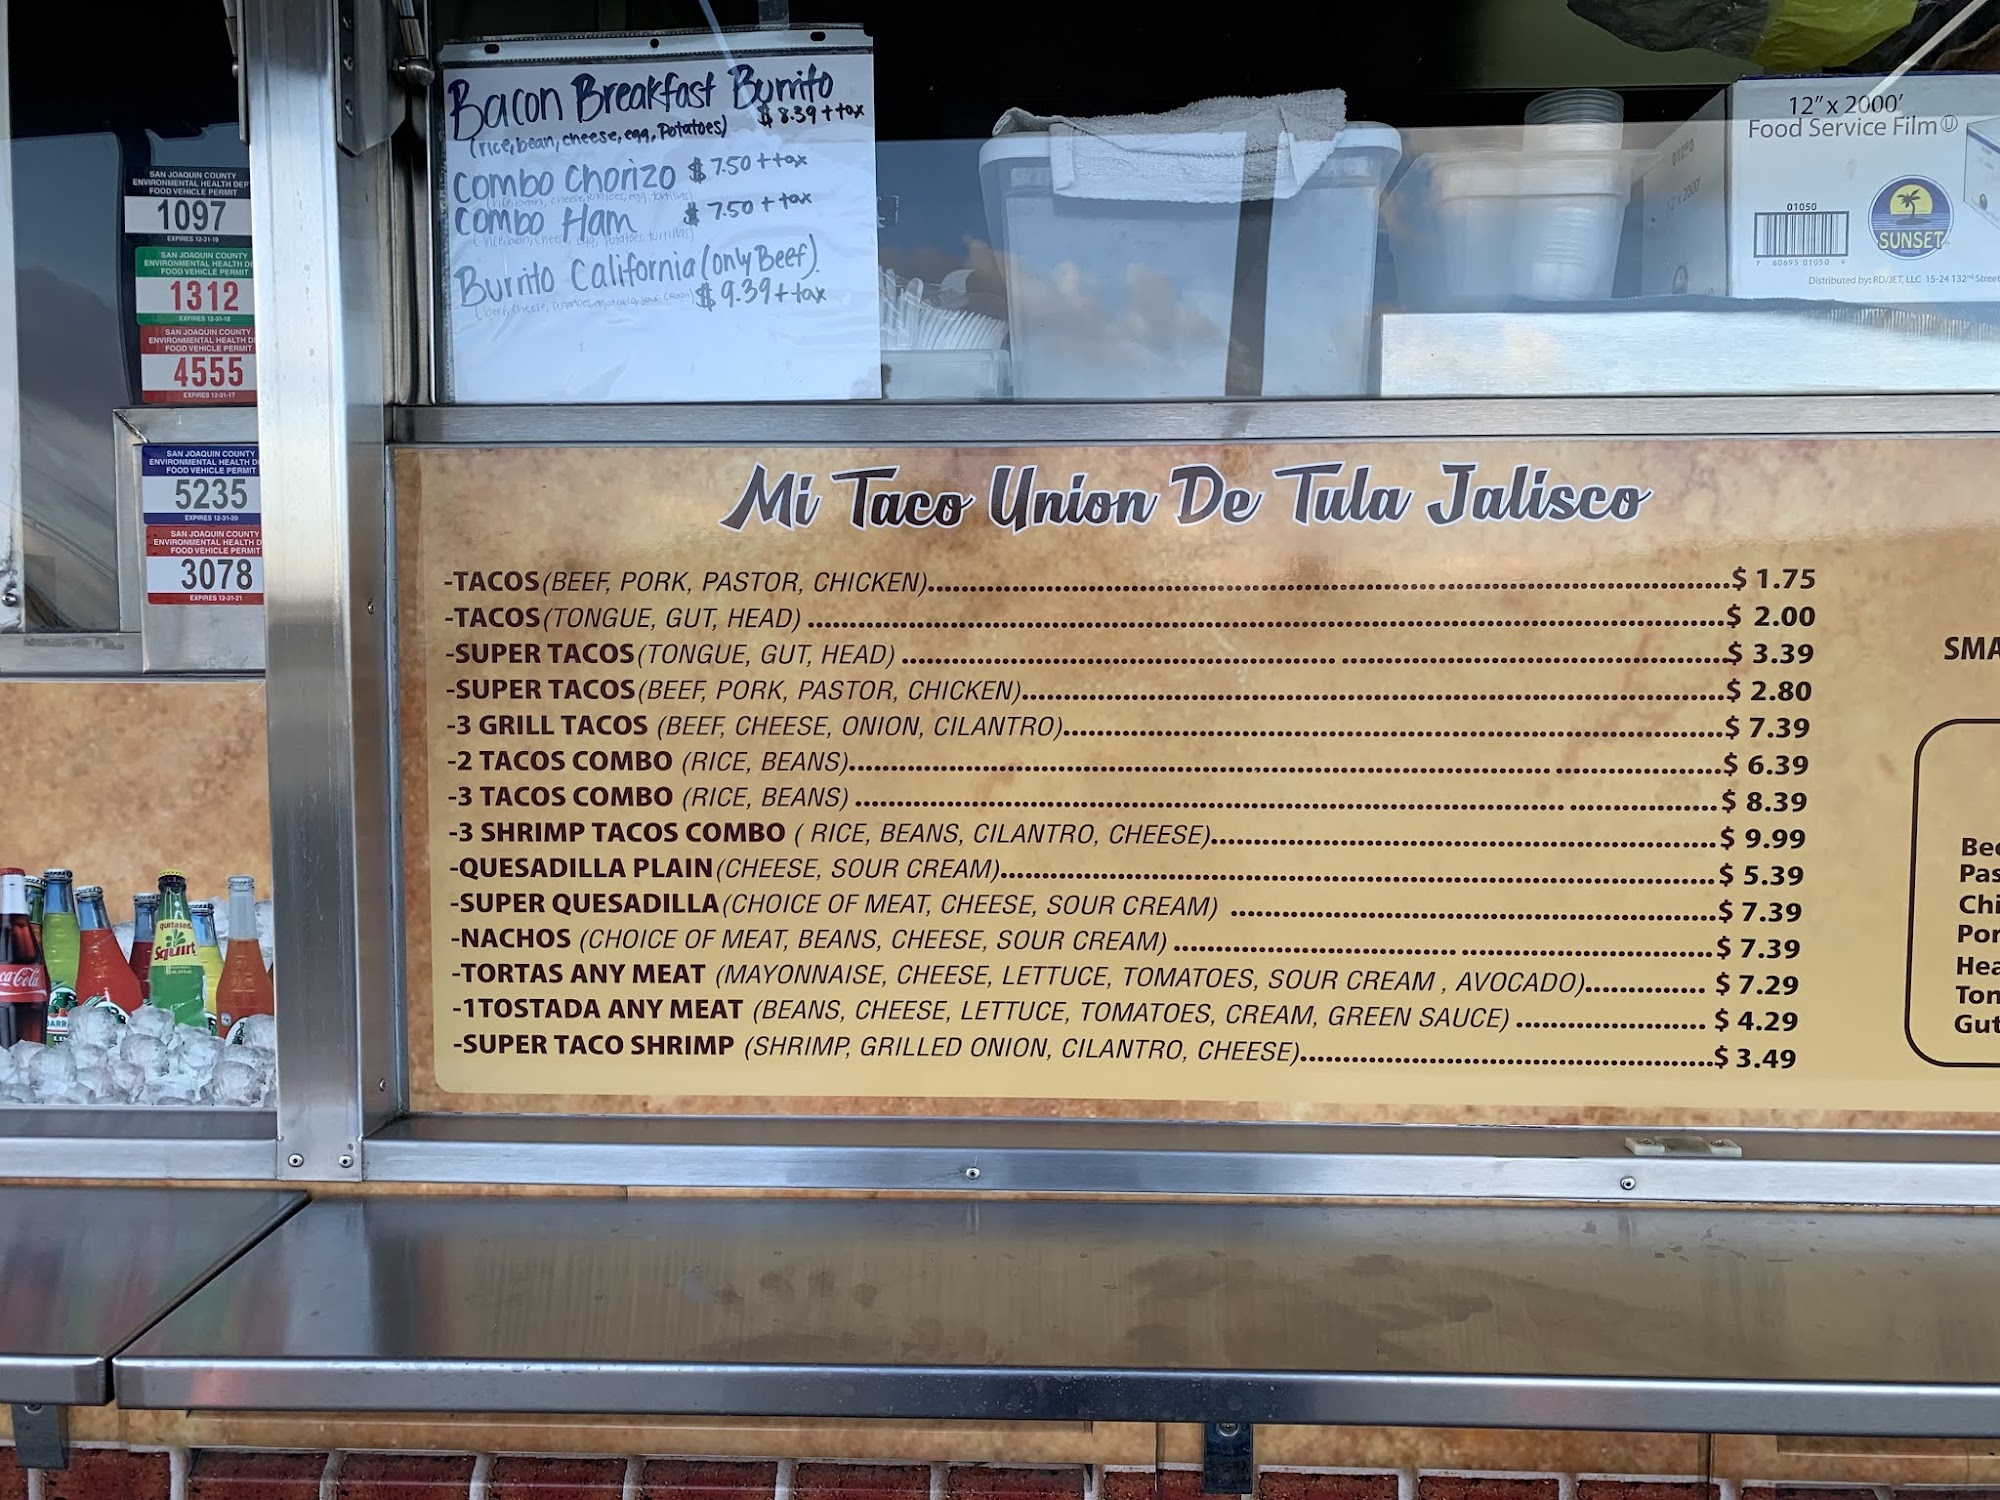 Bacon Breakfast Burrito
$8.39 + tax
(rice, bean, cheese, egg, Potatoes)
Combo Chorizo $7.50 + tax
Combo Ham $7.50 + tax
Burrito California (only Beef).
$9.39 + tax
12" x 2000'
Food Service Film
01050
SUNSET
7 60695 01050 9
Distributed by: RD/JET, LLC 15-24 132nd Street
SAN JOAQUIN COUNTY
ENVIRONMENTAL HEALTH DEP
FOOD VEHICLE PERMIT
1097
EXPIRES 12-31-19
SAN JOAQUIN COUNTY
ENVIRONMENTAL HEALTH D
FOOD VEHICLE PERMIT
1312
EXPIRES 12-31-18
SAN JOAQUIN COUNTY
ENVIRONMENTAL HEALTH D
FOOD VEHICLE PERMIT
4555
EXPIRES 12-31-17
SAN JOAQUIN COUNTY
ENVIRONMENTAL HEALTH D
FOOD VEHICLE PERMIT
5235
EXPIRES 12-31-20
SAN JOAQUIN COUNTY
ENVIRONMENTAL HEALTH D
FOOD VEHICLE PERMIT
3078
EXPIRES 12-31-21
Mi Taco Union De Tula Jalisco
-TACOS (BEEF, PORK, PASTOR, CHICKEN) $ 1.75
-TACOS (TONGUE, GUT, HEAD) $ 2.00
-SUPER TACOS (TONGUE, GUT, HEAD) $ 3.39
-SUPER TACOS (BEEF, PORK, PASTOR, CHICKEN) $ 2.80
-3 GRILL TACOS (BEEF, CHEESE, ONION, CILANTRO) $ 7.39
-2 TACOS COMBO (RICE, BEANS) $ 6.39
-3 TACOS COMBO (RICE, BEANS) $ 8.39
-3 SHRIMP TACOS COMBO ( RICE, BEANS, CILANTRO, CHEESE) $ 9.99
-QUESADILLA PLAIN (CHEESE, SOUR CREAM) $ 5.39
-SUPER QUESADILLA (CHOICE OF MEAT, CHEESE, SOUR CREAM) $ 7.39
-NACHOS (CHOICE OF MEAT, BEANS, CHEESE, SOUR CREAM) $ 7.39
-TORTAS ANY MEAT (MAYONNAISE, CHEESE, LETTUCE, TOMATOES, SOUR CREAM , AVOCADO) $ 7.29
-1TOSTADA ANY MEAT (BEANS, CHEESE, LETTUCE, TOMATOES, CREAM, GREEN SAUCE) $ 4.29
-SUPER TACO SHRIMP (SHRIMP, GRILLED ONION, CILANTRO, CHEESE) $ 3.49
SMA
Bee
Pas
Chi
Por
Hea
Ton
Gut
Coca-Cola
Squirt